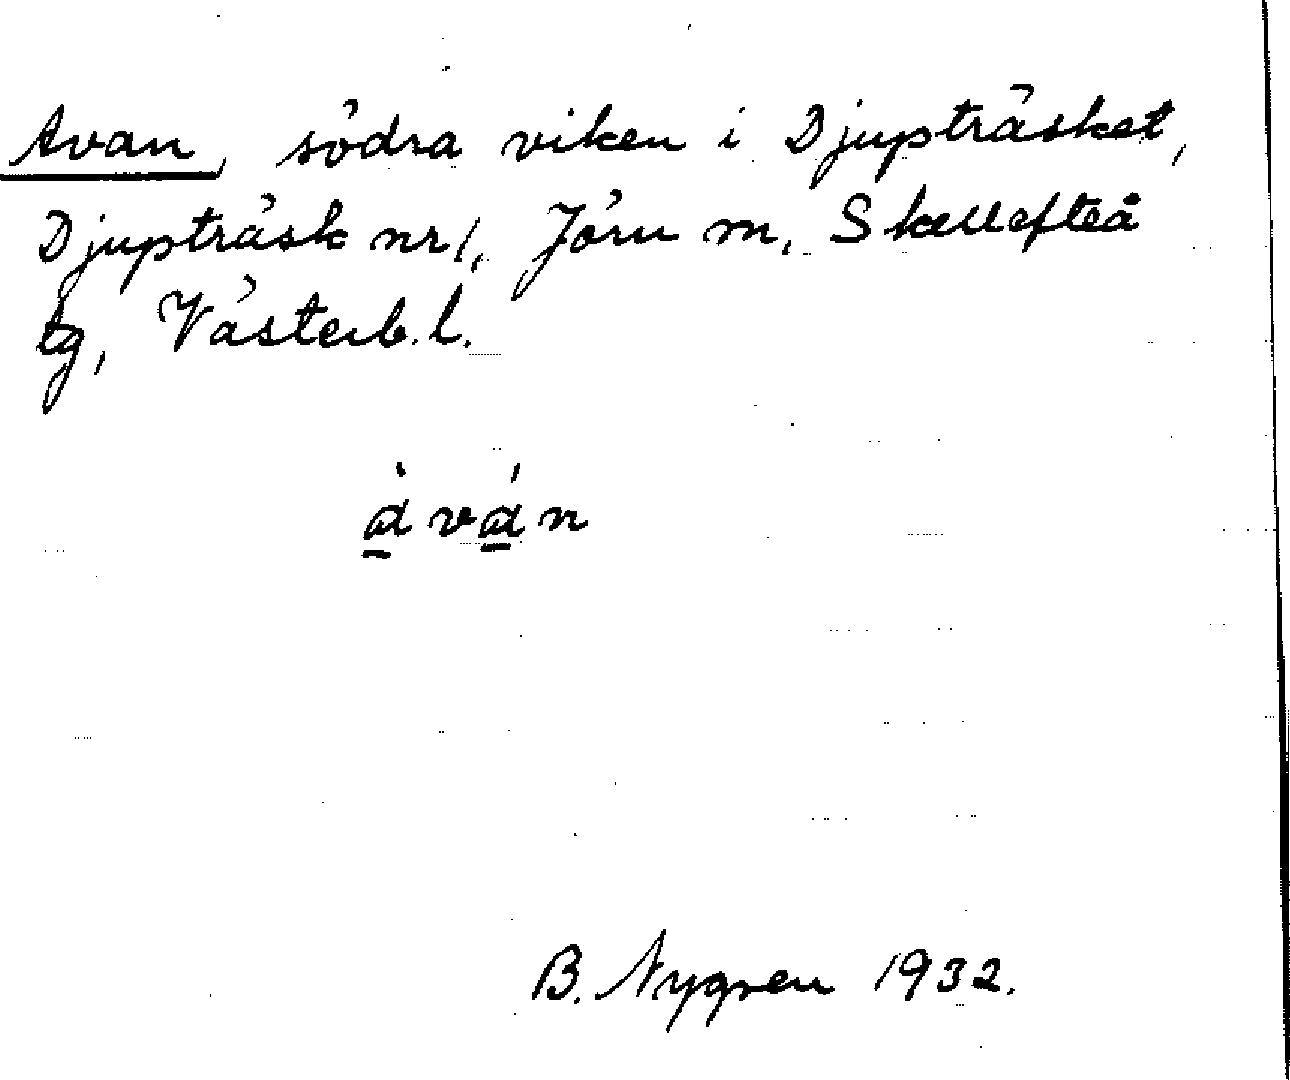 Avan, södra viken i Djupträsket,
Djupträsk nr 1, Jörn m, Skellefteå
tg, Västerb. l.
a̱̍va̱̍n
B. Nygren 1932.